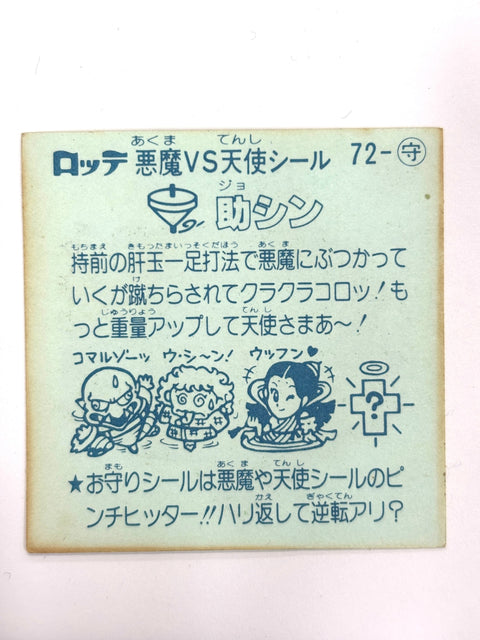 ロッテ 悪魔VS天使シール 72-守
あくま てんし
助シン
ジョ
持前の肝玉一足打法で悪魔にぶつかって
もちまえ きもったまいっそくだほう あくま
いくが蹴ちらされてクラクラコロッ!も
け
っと重量アップして天使さまあ〜!
じゅうりょう てんし
コマルゾーッ ウ・シ〜ン! ウッフン♥
?
★お守りシールは悪魔や天使シールのピ
まも あくま てんし
ンチヒッター!!ハリ返して逆転アリ?
かえ ぎゃくてん